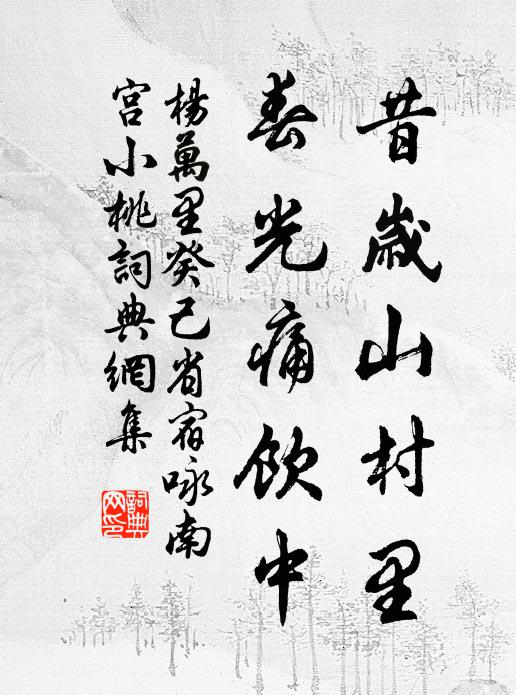 昔歲山村里
春光痛飲中
楊萬里癸巳省宿咏南
宮小桃詞典網集
詞典網印